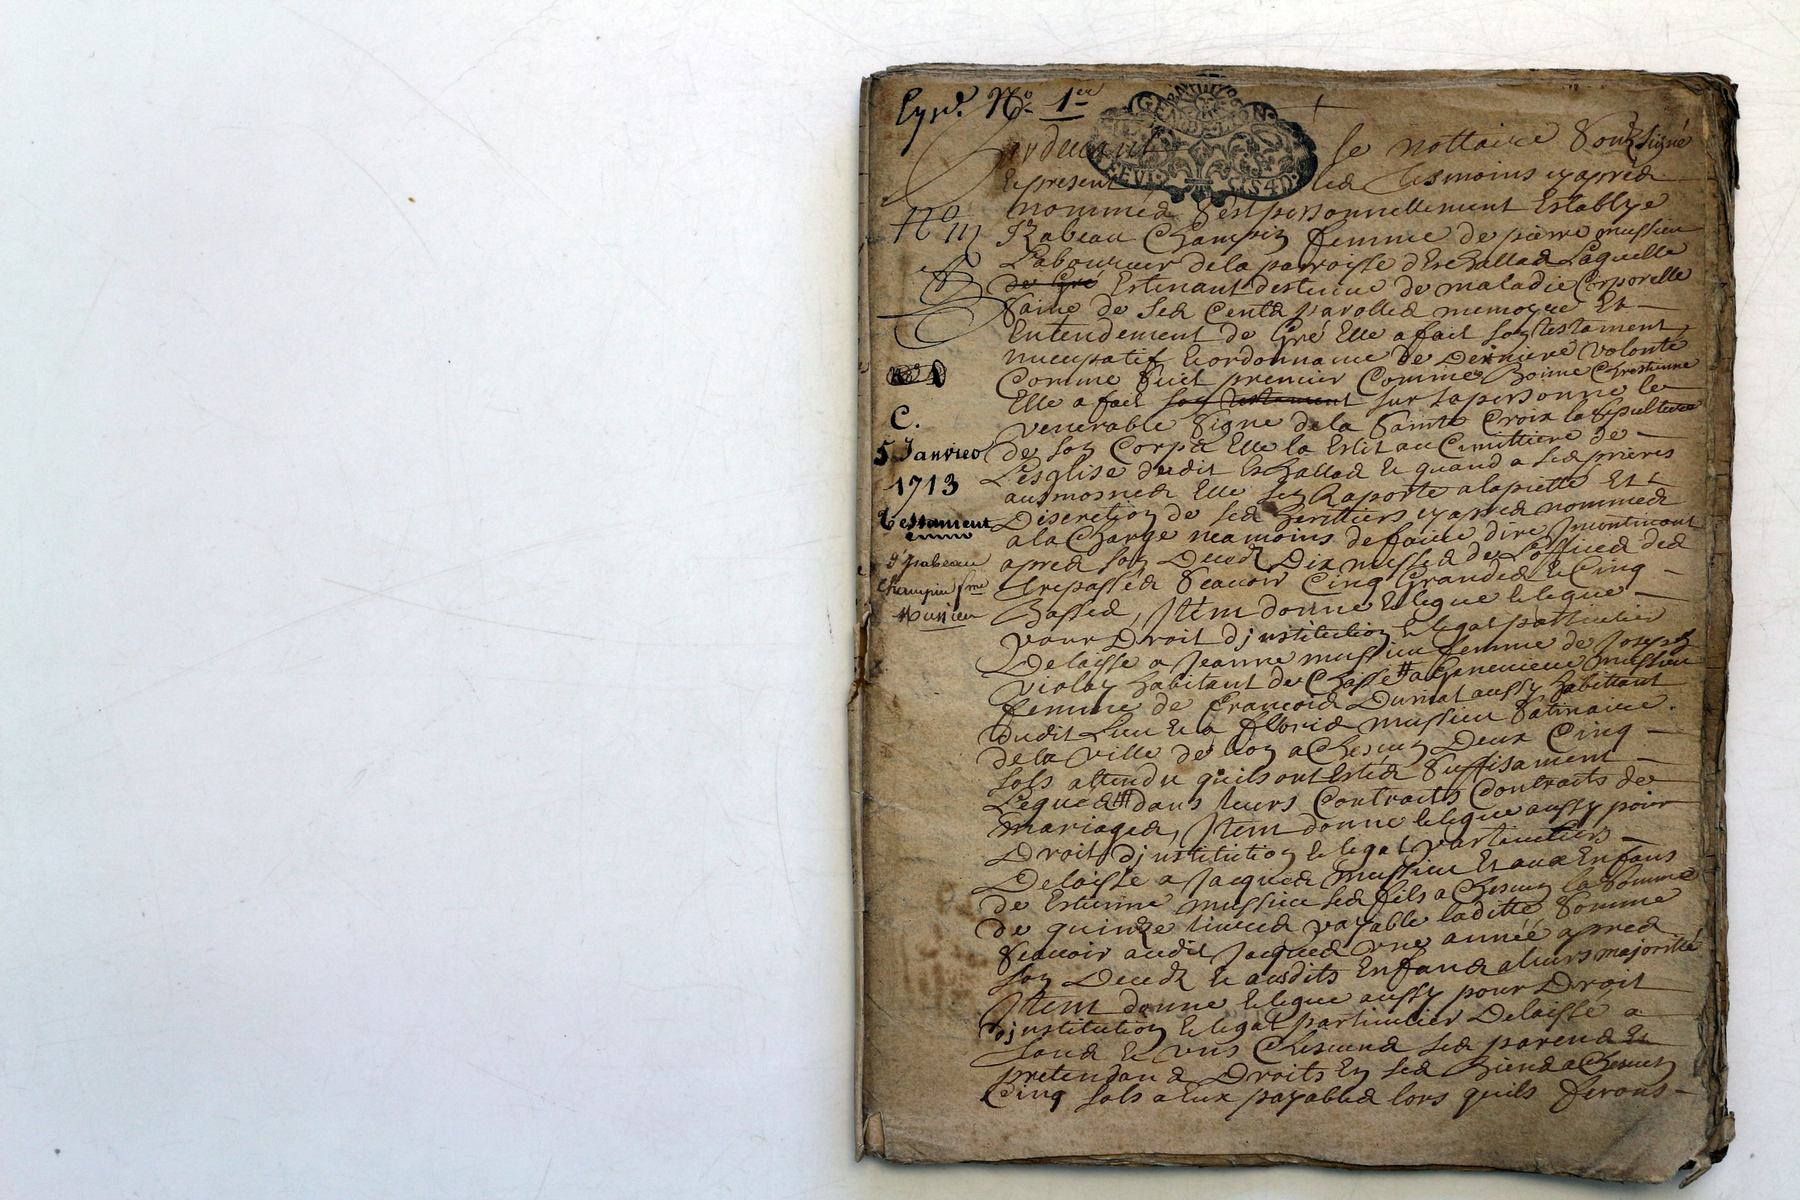 No. 1er
GENERALITE
LION
le nottaire Soubsigné
Et present les tesmoins cy apres
nommes S'est personnellement Establye
No
Izabeau Champin femme de pierre mussieu
Laboureur de la parroisse d'Eschallas Laquelle
de Gré Estenant destenue de maladie Corporelle
Saine de Ses Cents parolles memoyre Et
Entendement de Gré Elle a fait Son testament
nuncupatif Et ordonnance de Derniere volonté
Comme Suit premier Comme Bonne Chrestienne
Elle a fait son testament sur sa personne le
C.
venerable Signe de la Sainte Croix la sepulture
5 Janvier
de Son Corps Elle la Eslit au Cimittiere de
1713
L'esglise dudit Eschallas Et quand a Ses prieres
ausmosnes Elle Sen Raporte a la pietté Et
testament
Discretion de Ses herittiers cy apres nommes
a la Charge neamoins de faire dire Incontinant
d'ysabeau
apres Son Deceds Dix messes de L'office des
Champin fme
trepasses Scavoir Cinq Grandes Et Cinq
Musieu
Basses, Item donne Et legue Et legue
pour Droit d'jnstitution Et legat particulier
Delaisse a Jeanne mussieu femme de Joseph
violay habitant de Chasse # a Genevieve mussieu
femme de Francois Durnat aussy habittant
dudit Lieu Et a Floris mussieu Satinaire.
de la ville de Lion a Chescun Deux Cinq
sols attendu qu'ils ont Estés Suffisament
Legués # dans leurs Contracts Contracts de
mariages, Item donne Et legue aussy pour
Droit d'jnstitution Et legat particuliers
Delaisse a Jacques mussieu Et aux Enfans
de Estienne mussieu Ses fils a Chescun la Somme
de quinze livres payable laditte Somme
Scavoir audit Jacques vne année apres
Son Deceds Et ausdits Enfans a leurs majorité
Item donne Et legue aussy pour Droit
d'jnstitution Et legat particulier Delaisse a
tous Et vns Chescuns Ses parens Et
pretendans Droits En Ses Biens a Chescun
Cinq sols a Eux payables lors qu'ils feront